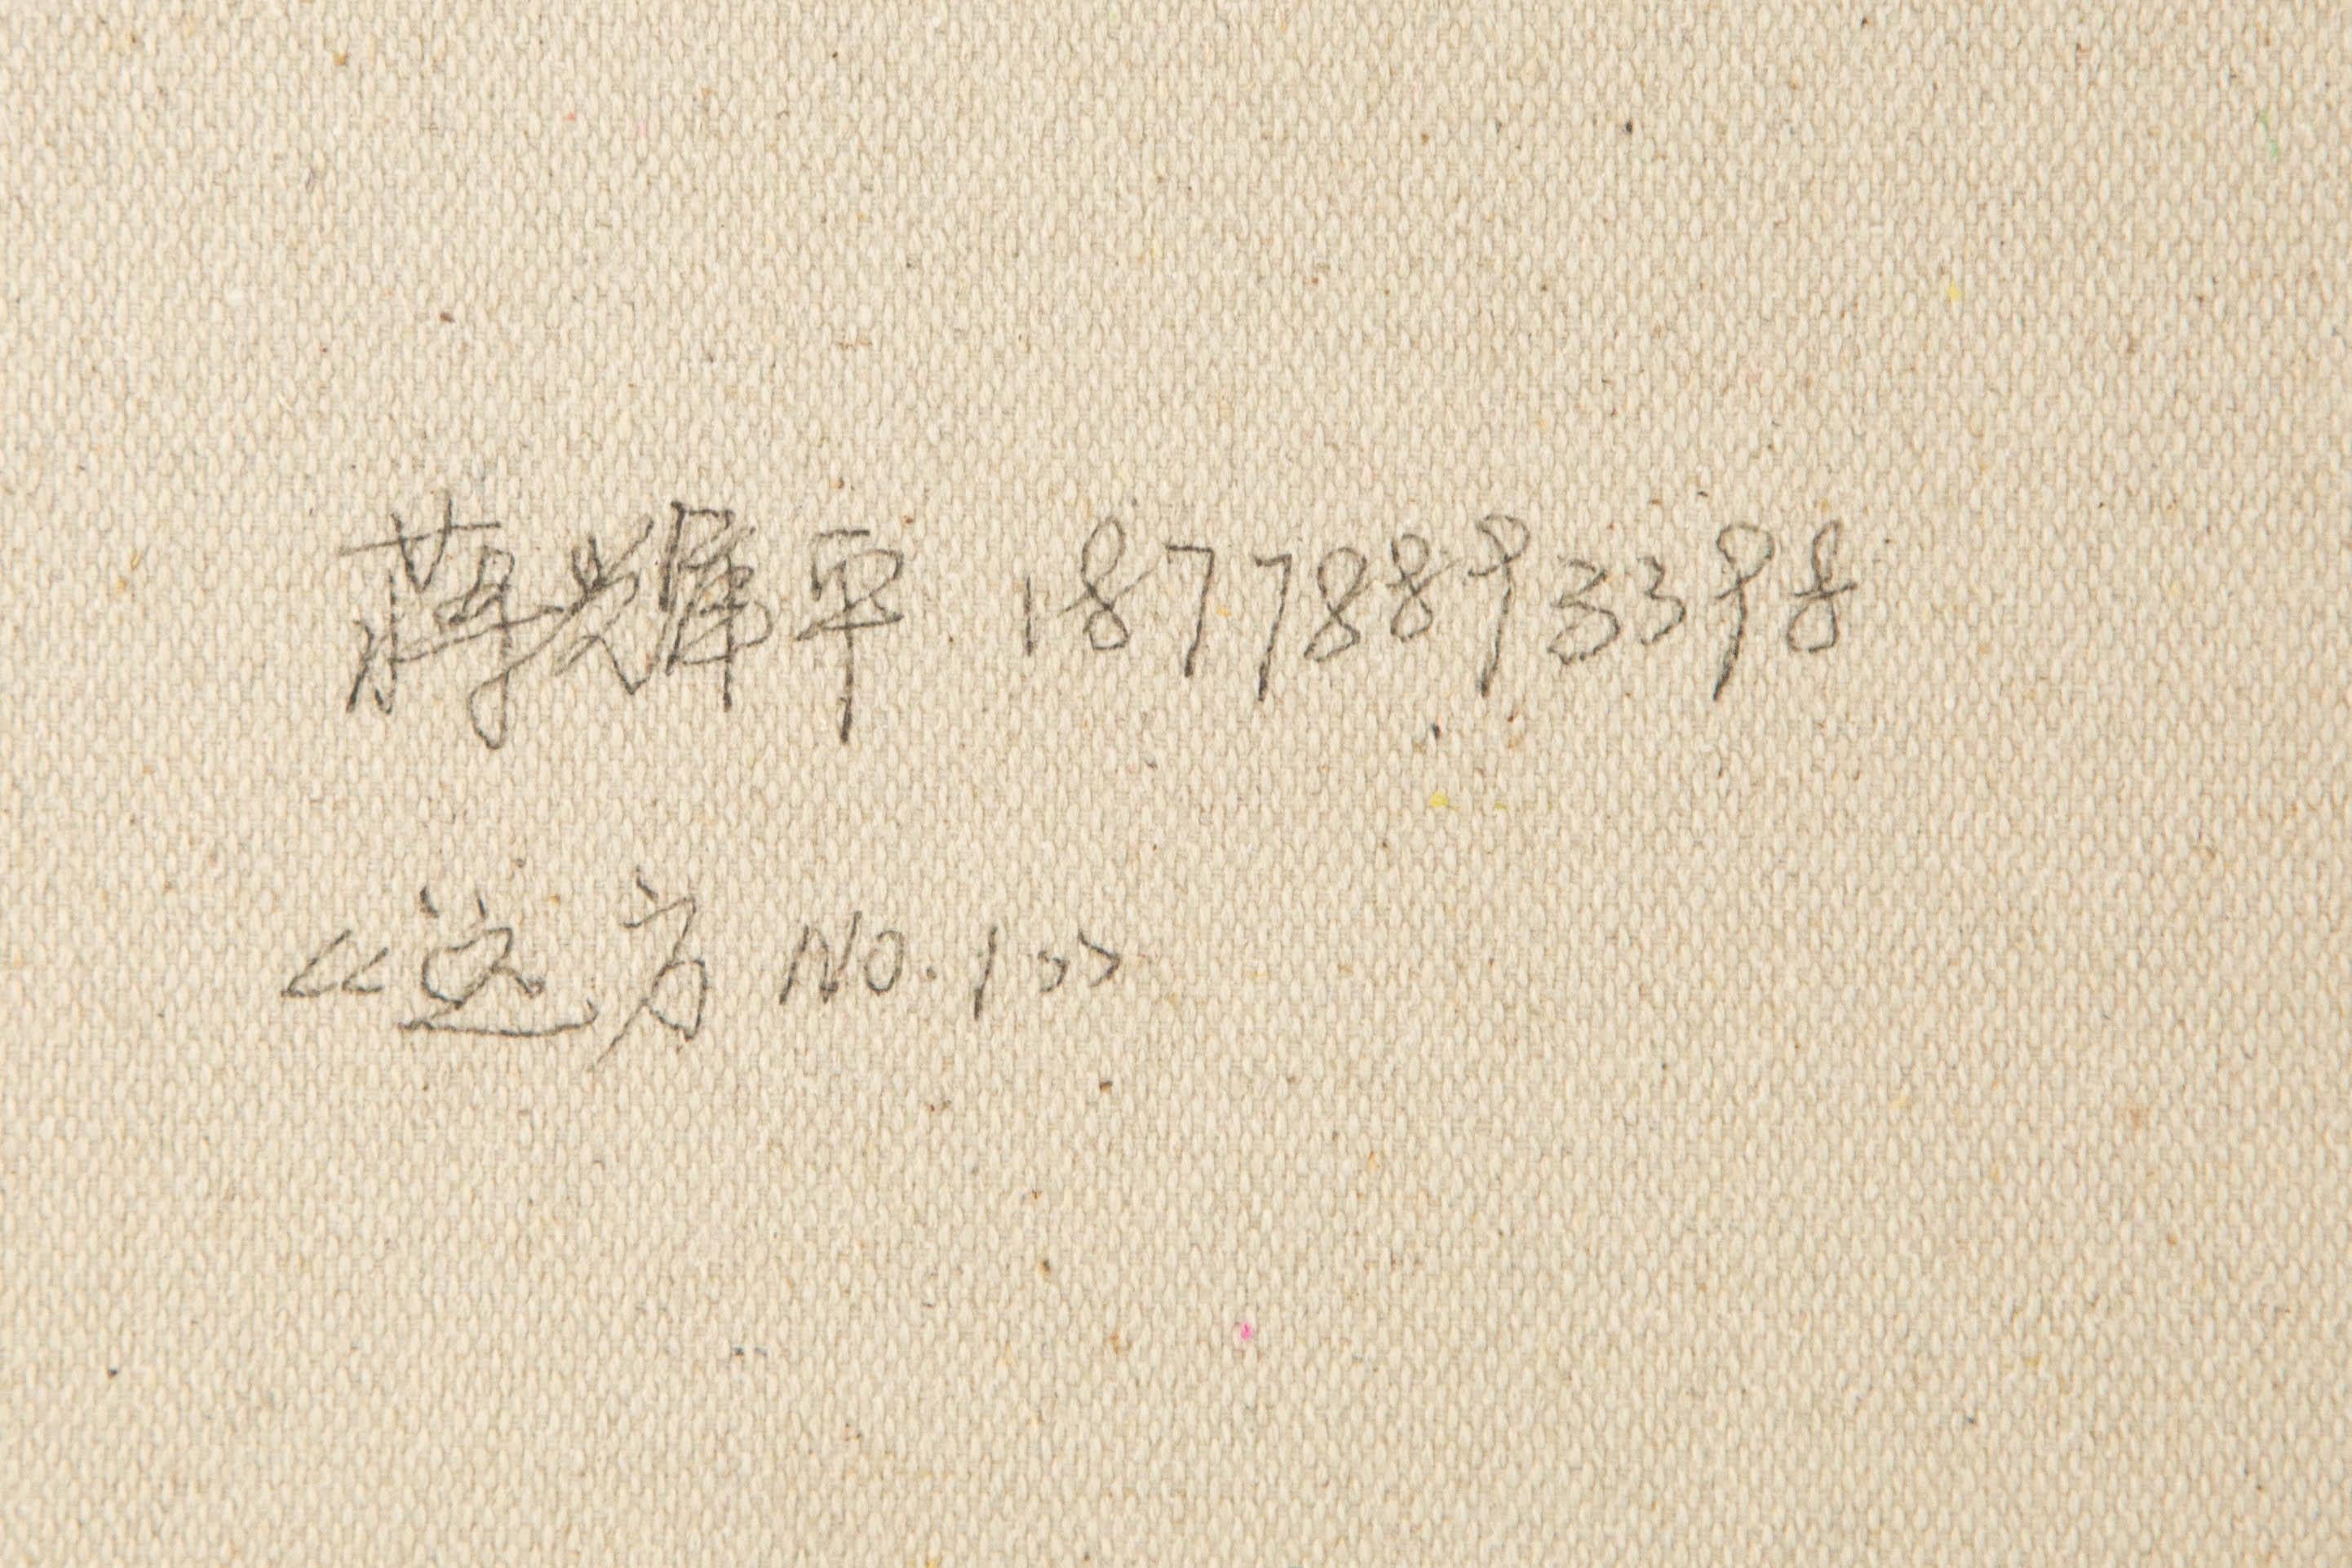 蒋耀平 18778893398
《远方 NO.1》